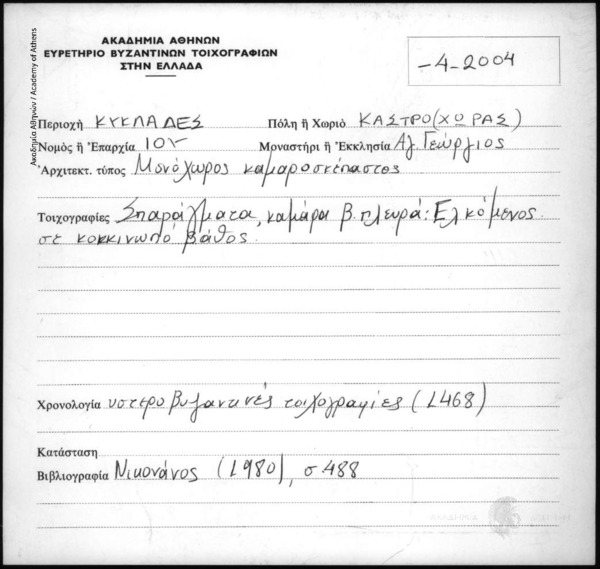 ΑΚΑΔΗΜΙΑ ΑΘΗΝΩΝ
ΕΥΡΕΤΗΡΙΟ ΒΥΖΑΝΤΙΝΩΝ ΤΟΙΧΟΓΡΑΦΙΩΝ
ΣΤΗΝ ΕΛΛΑΔΑ
-4-2004
Ακαδημία Αθηνών / Academy of Athens
Περιοχή ΚΥΚΛΑΔΕΣ Πόλη ἤ Χωριό ΚΑΣΤΡΟ(ΧΩΡΑΣ)
Νομός ἤ Ἐπαρχία ΙΟΥ Μοναστήρι ἤ Ἐκκλησία Αγ. Γεώργιος
Ἀρχιτεκτ. τύπος Μονόχωρος καμαροσκέπαστος
Τοιχογραφίες Σπαράγματα, καμάρα β. πλευρά: Ελκόμενος
σε κοκκινωπό βάθος.
Χρονολογία υστεροβυζαντινές τοιχογραφίες (1468)
Κατάσταση
Βιβλιογραφία Νικονάνος (1980), σ 488